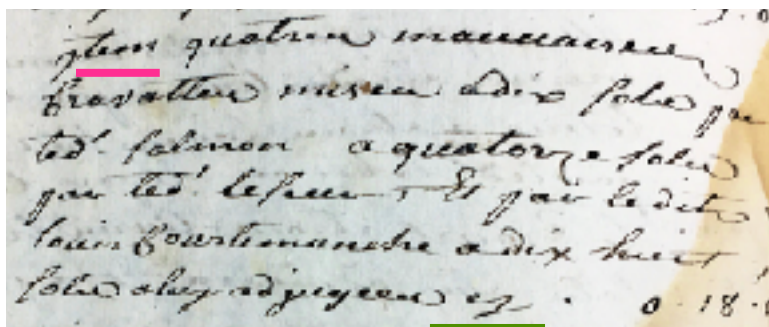 jtem quatrieu mauuaiseu
Cravatteu miseu adix solu par
led.t Salmon a quatorze solu
par led.t lesueur Et par ledit
louis Courtemanche a dix huit
solu aluy adjugeeu cy . 0 . 18 .